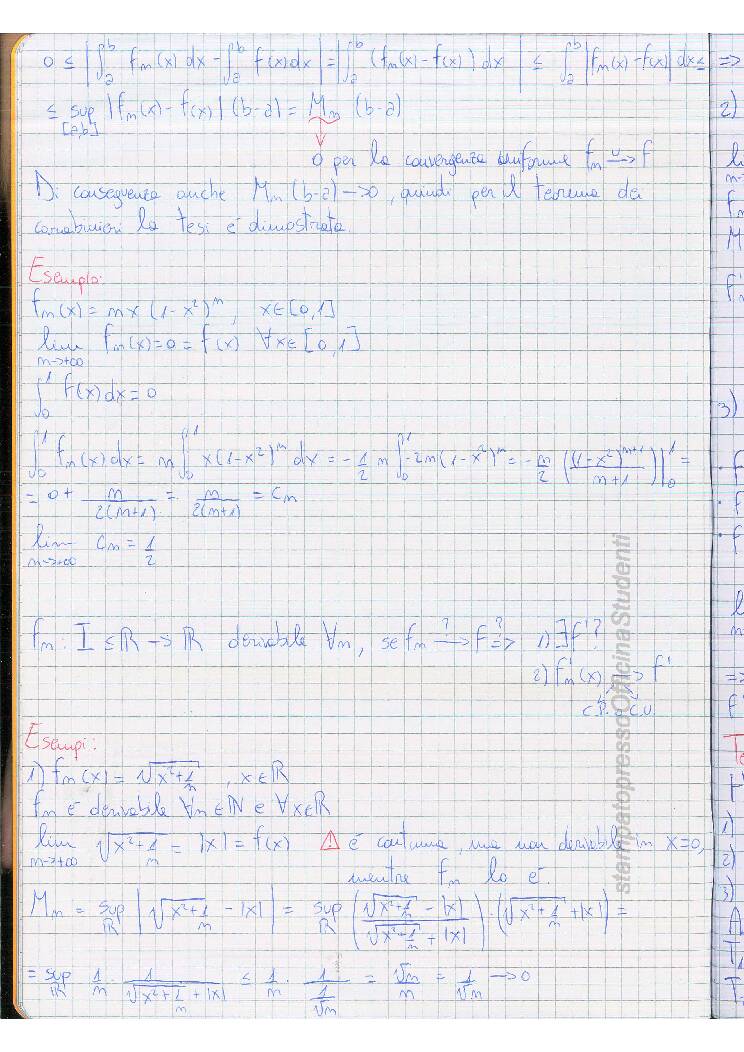 0 ≤ |∫_a^b f_n(x) dx - ∫_a^b f(x) dx| = |∫_a^b (f_n(x) - f(x)) dx| ≤ ∫_a^b |f_n(x) - f(x)| dx ≤
≤ sup_[a,b] |f_n(x) - f(x)| (b-a) = M_n (b-a)
0 per la convergenza uniforme f_n →^u f
Di conseguenza anche M_n (b-a) → 0, quindi per il teorema dei
carabinieri la tesi è dimostrata.
Esempio:
f_n(x) = nx (1-x²)^n, x∈[0,1]
lim_{n→+∞} f_n(x) = 0 = f(x) ∀x∈[0,1]
∫_0^1 f(x) dx = 0
∫_0^1 f_n(x) dx = n ∫_0^1 x(1-x²)^n dx = -1/2 n ∫_0^1 -2n(1-x²)^n = -n/2 ((1-x²)^{n+1}/(n+1))|_0^1 =
= 0 + n/(2(n+1)) = n/(2(n+1)) = C_n
lim_{n→+∞} C_n = 1/2
f_n : I ⊆ ℝ → ℝ derivabile ∀n, se f_n →^? f ⇒^? 1) ∃f'?
2) f'_n(x) → f'
C.P. C.U.
Esempi:
1) f_n(x) = √(x²+1/n), x∈ℝ
f_n è derivabile ∀n∈ℕ e ∀x∈ℝ
lim_{n→+∞} √(x²+1/n) = |x| = f(x) ⚠ è continua, ma non derivabile in x=0,
mentre f_n lo è.
M_n = sup_ℝ |√(x²+1/n) - |x|| = sup_ℝ ((√(x²+1/n) - |x|)/(√(x²+1/n) + |x|)) · (√(x²+1/n) + |x|) =
= sup_ℝ 1/n · 1/(√(x²+1/n) + |x|) ≤ 1/n · 1/(1/√n) = √n/n = 1/√n → 0
stampatopressoOfficinaStudenti